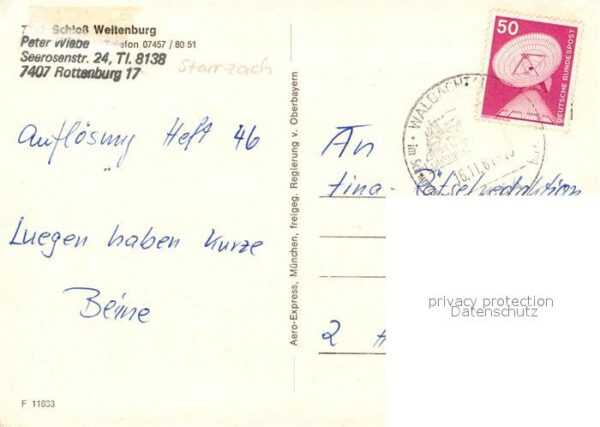 Schloß Weitenburg
Peter Wiebe Telefon 07457 / 80 51
Seerosenstr. 24, Tl. 8138
7407 Rottenburg 17
Starzach
Auflösung Heft 46
Luegen haben kurze
Beine
F 11603
Aero-Express, München, freigeg. Regierung v. Oberbayern
50
DEUTSCHE BUNDESPOST
WALDACHTAL
16.11.81
An
tina-Rätselredaktion
2
privacy protection
Datenschutz